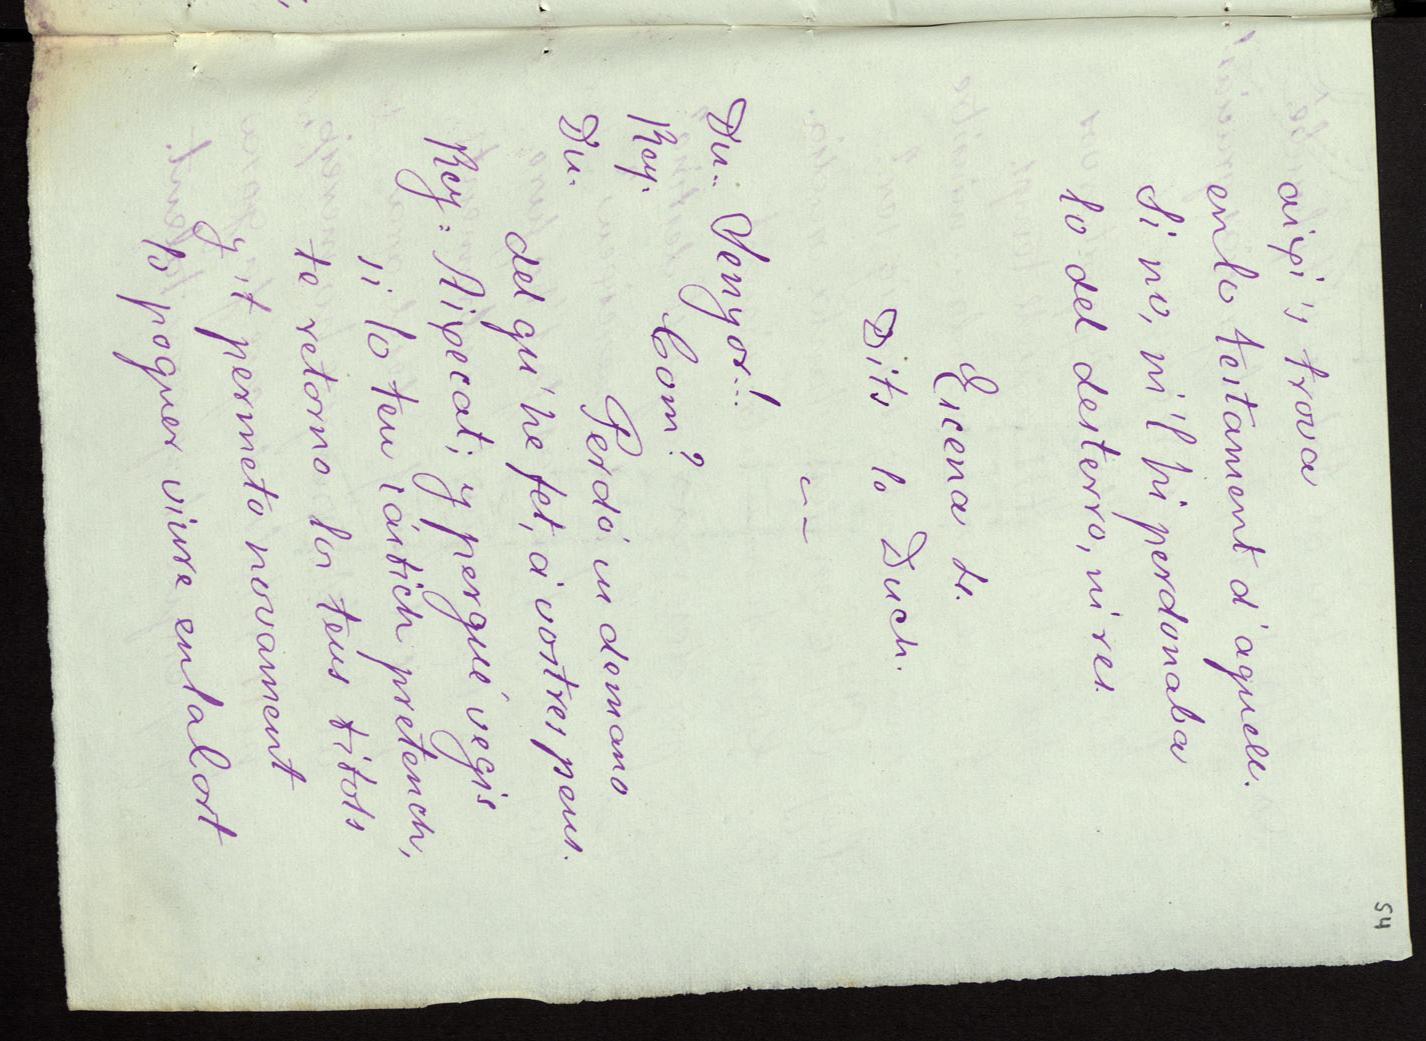 54
aixi 's trova
en lo testament d' aquell.
Si no, ni 'l hi perdonaba
lo del desterro, ni res.
Escena
Dits lo Duch.
Du.. Senyor!..
Rey. Com?
Du. Perdó us demano
del qui he fet, á vostres peus.
Rey. Aixecat; y perqué vegis
si lo teu cástich pretench,
te retorno los teus titols
y 't permeto novament
lo poguer viure en la Cort